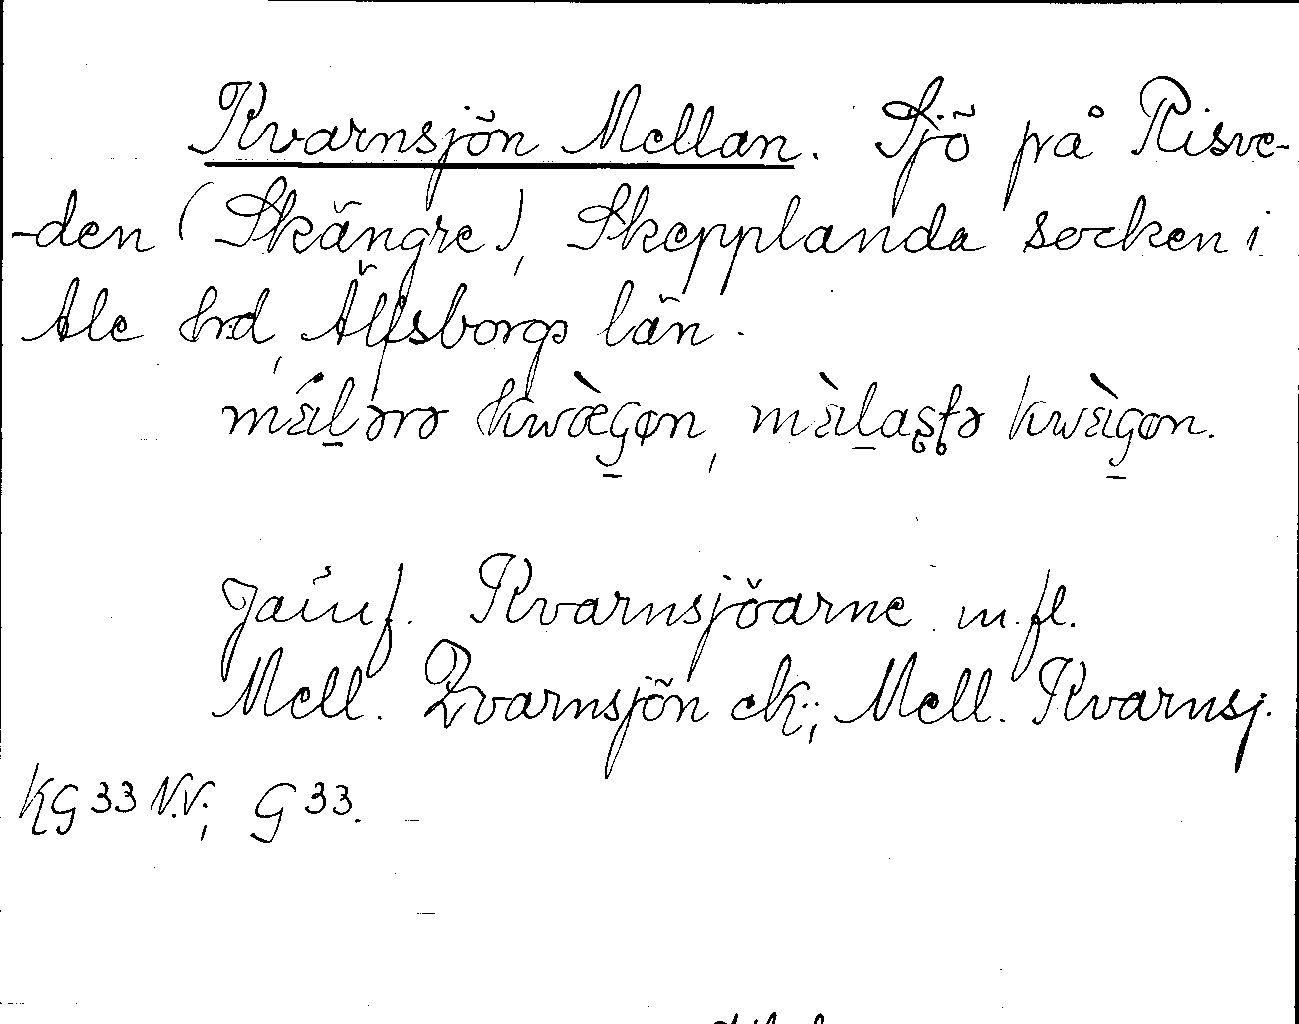 Kvarnsjön Mellan. Sjö på Risve-
-den (Skängre), Skepplanda socken i
Ale hrd, Älfsborgs län.
kwægøn,
Jämf. Kvarnsjöarne m.fl.
Mell. Qvarnsjön ek.; Mell. Kvarnsj.
KG 33 N.V.; G 33.